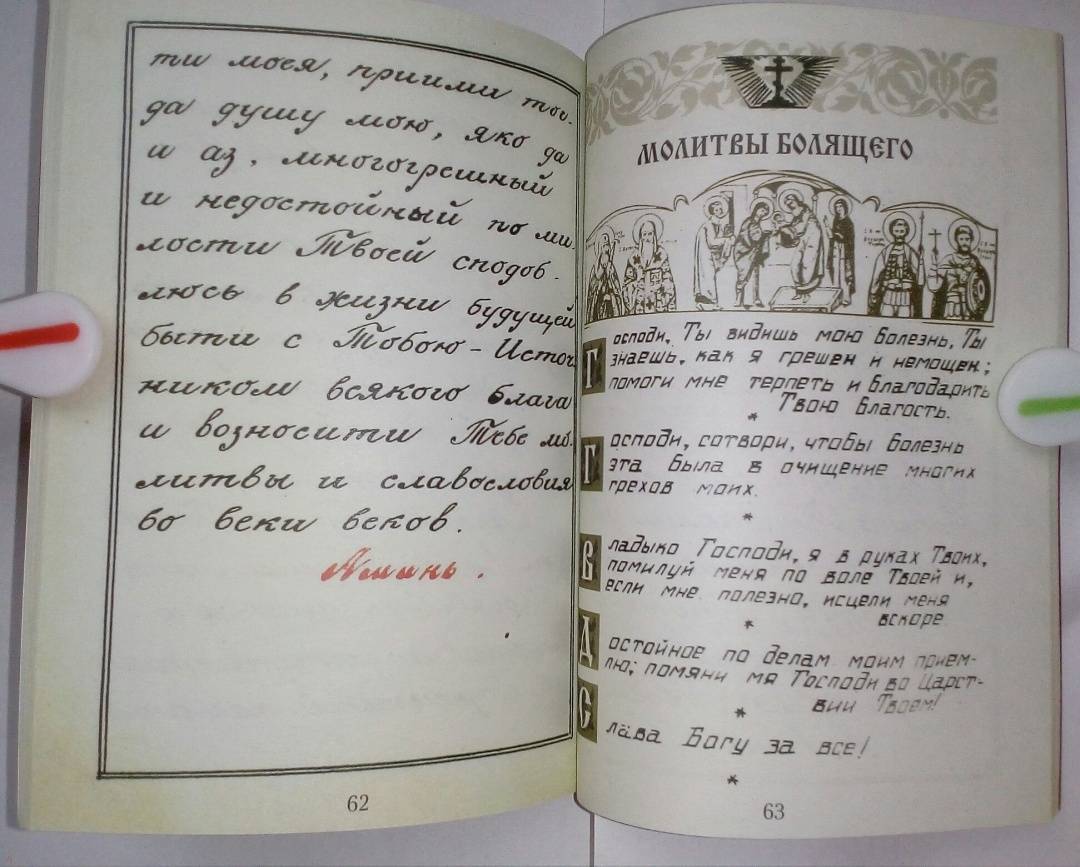 ти моея, приими тог-
да душу мою, яко да
и аз, многогрешный
и недостойный по ми-
лости Твоей сподоб-
люсь в жизни будущей
быти с Тобою – Источ-
ником всякого блага
и возносити Тебе мо-
литвы и славословия
во веки веков.
Аминь.
62
МОЛИТВЫ БОЛЯЩЕГО
Господи, Ты видишь мою болезнь, Ты
знаешь, как я грешен и немощен;
помоги мне терпеть и благодарить
Твою благость.
*
Господи, сотвори, чтобы болезнь
эта была в очищение многих
грехов моих.
*
Владыко Господи, я в руках Твоих,
помилуй меня по воле Твоей и,
если мне полезно, исцели меня
вскоре.
*
Достойное по делам моим прием-
лю; помяни мя Господи во Царст-
вии Твоем!
*
Слава Богу за все!
*
63